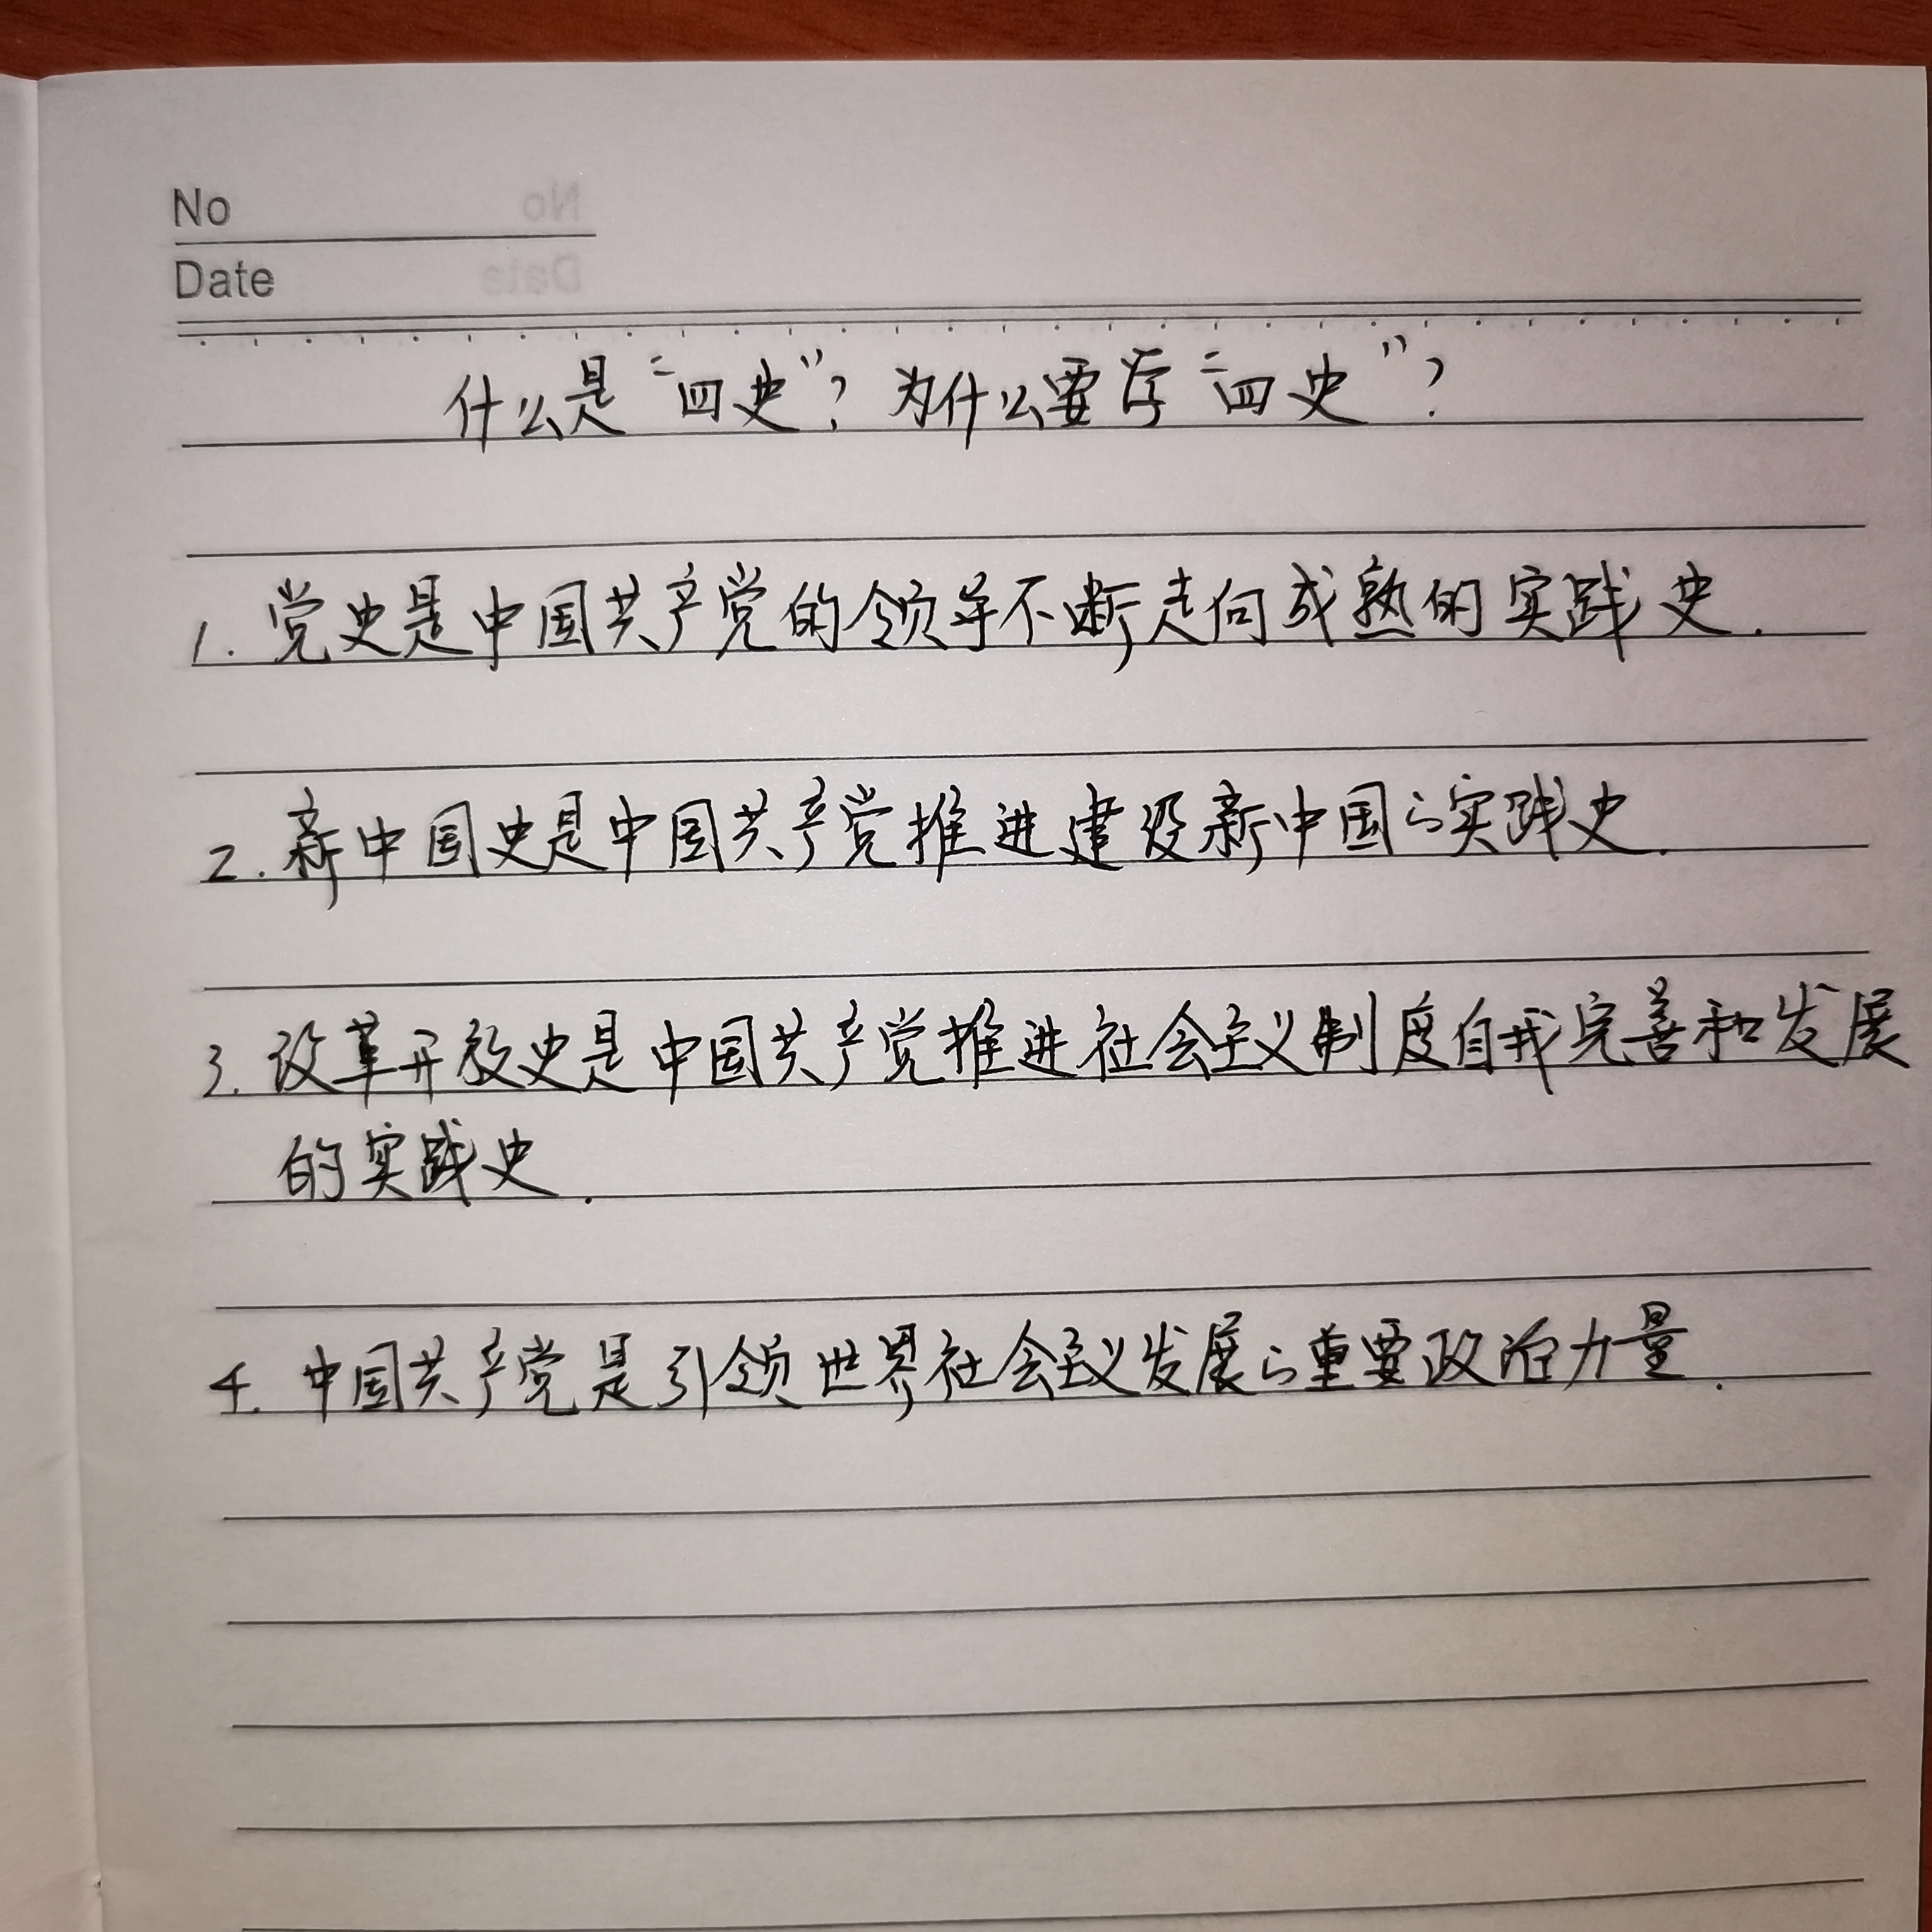 No
Date
什么是“四史”？为什么要学“四史”？
1. 党史是中国共产党的领导不断走向成熟的实践史.
2. 新中国史是中国共产党推进建设新中国的实践史.
3. 改革开放史是中国共产党推进社会主义制度自我完善和发展
的实践史.
4. 中国共产党是引领世界社会主义发展的重要政治力量.